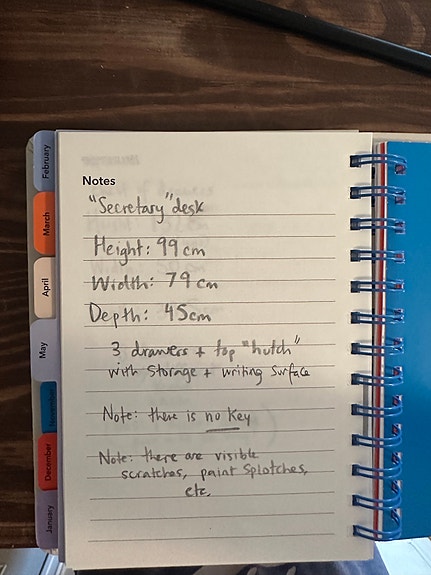 Notes
"Secretary" desk
Height: 99 cm
Width: 79 cm
Depth: 45cm
3 drawers + top "hutch"
with storage + writing surface
Note: there is no key
Note: there are visible
scratches, paint splotches,
etc.
February
March
April
May
November
December
January